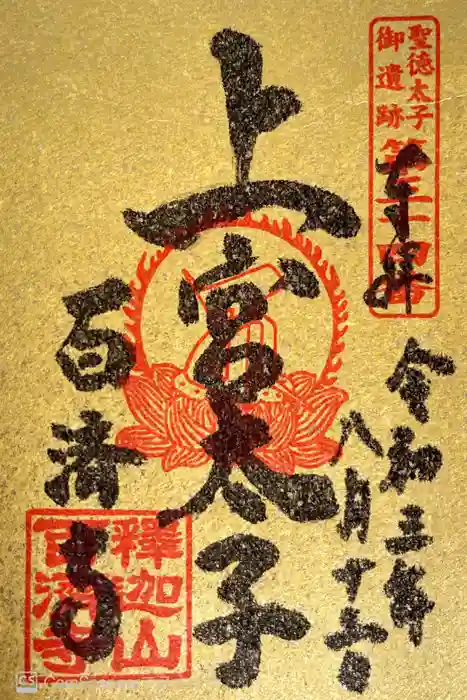 聖徳太子
御遺跡
第三十四番
奉拝
令和三年
八月十六日
上宮太子
百済寺
釋迦山
百済寺
CamScanner